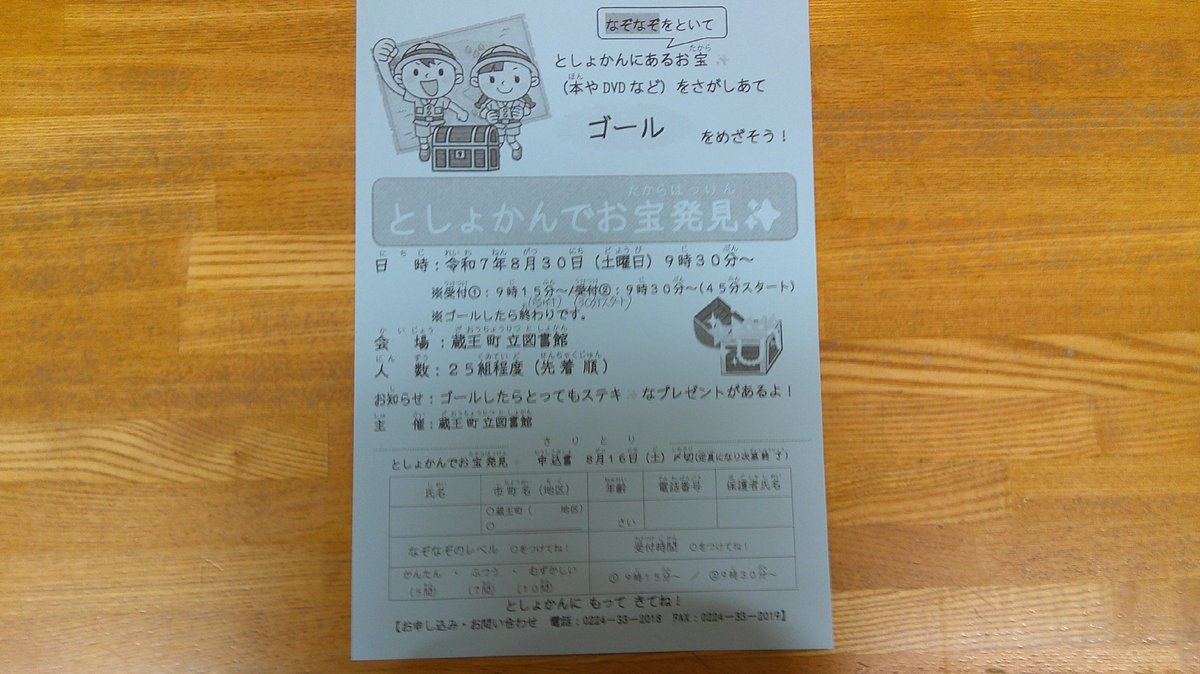 なぞなぞをといて
としょかんにあるお宝
（本やDVDなど）をさがしあて
ゴール をめざそう！
としょかんでお宝発見
日 時：令和７年８月３０日（土曜日）９時３０分～
※受付①：９時１５分～/受付②：９時３０分～(４５分スタート)
(30分スタート)
※ゴールしたら終わりです。
会 場：蔵王町立図書館
人 数：２５組程度（先着順）
お知らせ：ゴールしたらとってもステキ なプレゼントがあるよ！
主 催：蔵王町立図書館
きりとり
としょかんでお宝発見 申込書 ８月１６日（土）〆切(定員になり次第終了)
氏名 市町名（地区） 年齢 電話番号 保護者氏名
○蔵王町（ 地区）
○ さい
なぞなぞのレベル ○をつけてね！ 受付時間 ○をつけてね！
かんたん ・ ふつう ・ むずかしい ① ９時１５分～ ／ ②９時３０分～
（５問） （７問） （１０問）
としょかんに もって きてね！
【お申し込み・お問い合わせ 電話：0224－33－2018 FAX：0224－33－2019】